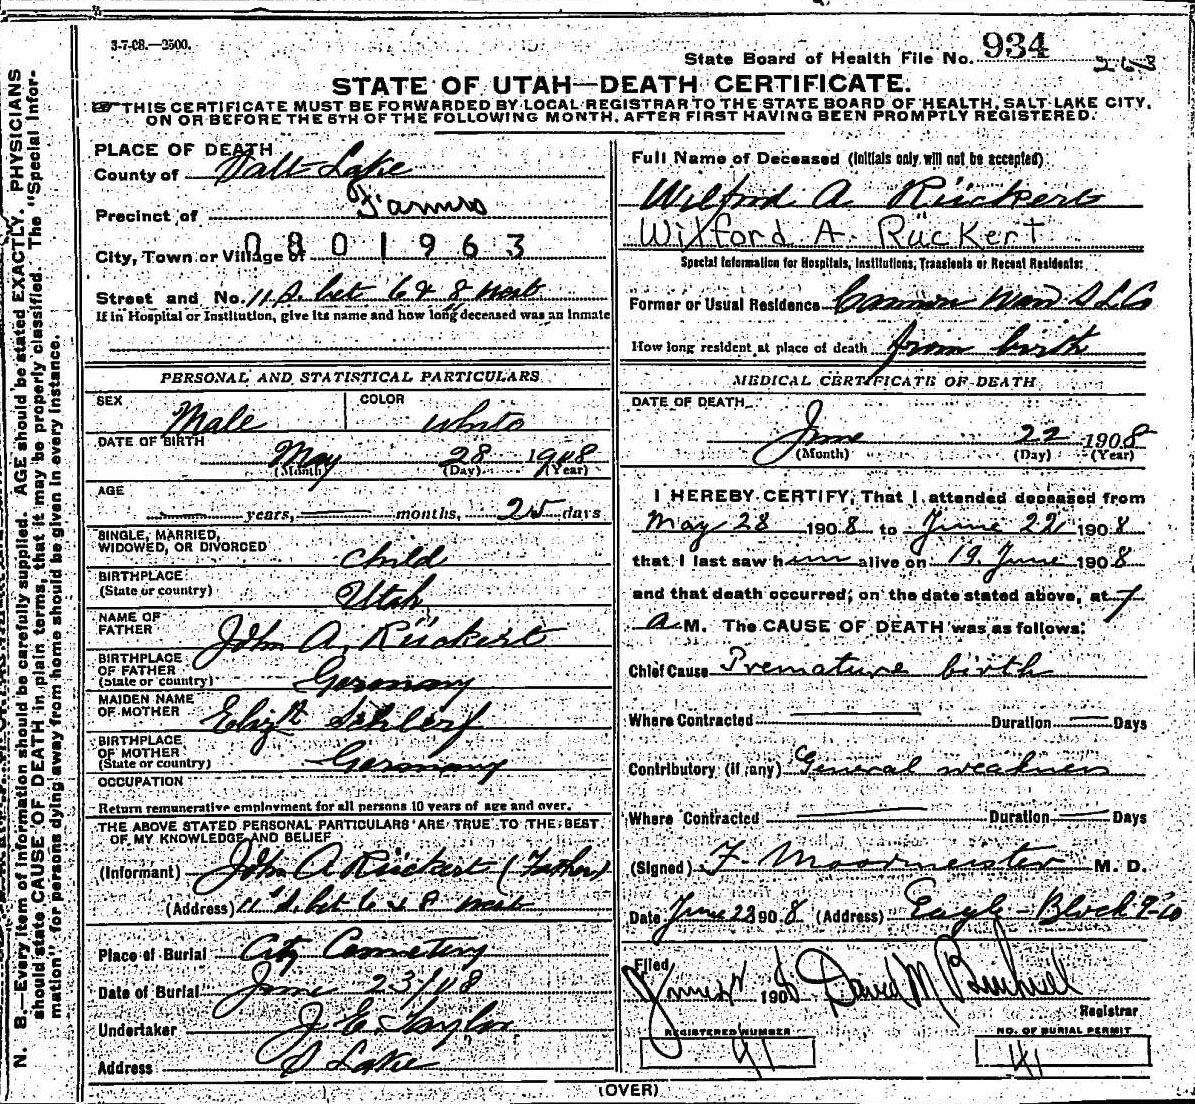 3-7-08.—2500.
State Board of Health File No. 934
STATE OF UTAH—DEATH CERTIFICATE.
THIS CERTIFICATE MUST BE FORWARDED BY LOCAL REGISTRAR TO THE STATE BOARD OF HEALTH, SALT LAKE CITY,
ON OR BEFORE THE 5TH OF THE FOLLOWING MONTH, AFTER FIRST HAVING BEEN PROMPTLY REGISTERED.
N. B.—Every item of information should be carefully supplied. AGE should be stated EXACTLY. PHYSICIANS
should state CAUSE OF DEATH in plain terms, that it may be properly classified. The "Special Infor-
mation" for persons dying away from home should be given in every instance.
PLACE OF DEATH
County of Salt Lake
Precinct of Farmers
City, Town or Village of 0801963
Street and No. 11 S. bet 6 & 8 West
If in Hospital or Institution, give its name and how long deceased was an inmate
PERSONAL AND STATISTICAL PARTICULARS
SEX Male COLOR white
DATE OF BIRTH May 28 1908
(Month) (Day) (Year)
AGE
years, months, 25 days
SINGLE, MARRIED,
WIDOWED, OR DIVORCED Child
BIRTHPLACE
(State or country) Utah
NAME OF
FATHER John A. Rückert
BIRTHPLACE
OF FATHER
(State or country) Germany
MAIDEN NAME
OF MOTHER Elizt Schlerf
BIRTHPLACE
OF MOTHER
(State or country) Germany
OCCUPATION
Return remunerative employment for all persons 10 years of age and over.
THE ABOVE STATED PERSONAL PARTICULARS ARE TRUE TO THE BEST
OF MY KNOWLEDGE AND BELIEF
(Informant) John A Rückert (Father)
(Address) 11 S. bet 6 & 8 West
Place of Burial City Cemetery
Date of Burial June 23/08
Undertaker J. E. Taylor
Address S Lake
Full Name of Deceased (Initials only will not be accepted)
Wilford A Rückert
Wilford A. Rückert
Special Information for Hospitals, Institutions, Transients or Recent Residents:
Former or Usual Residence Cannon Ward S L Co
How long resident at place of death from birth
MEDICAL CERTIFICATE OF DEATH
DATE OF DEATH
June 22 1908
(Month) (Day) (Year)
I HEREBY CERTIFY, That I attended deceased from
May 28 1908 to June 22 1908
that I last saw him alive on 19 June 1908
and that death occurred, on the date stated above, at 7
A M. The CAUSE OF DEATH was as follows:
Chief Cause Premature birth
Where Contracted Duration Days
Contributory (if any) General weakness
Where Contracted Duration Days
(Signed) F. Moormeister M. D.
Date June 23 1908 (Address) Eagle Block 9-10
Filed
June 1908 David M
Registrar
REGISTERED NUMBER NO. OF BURIAL PERMIT
91 41
(OVER)